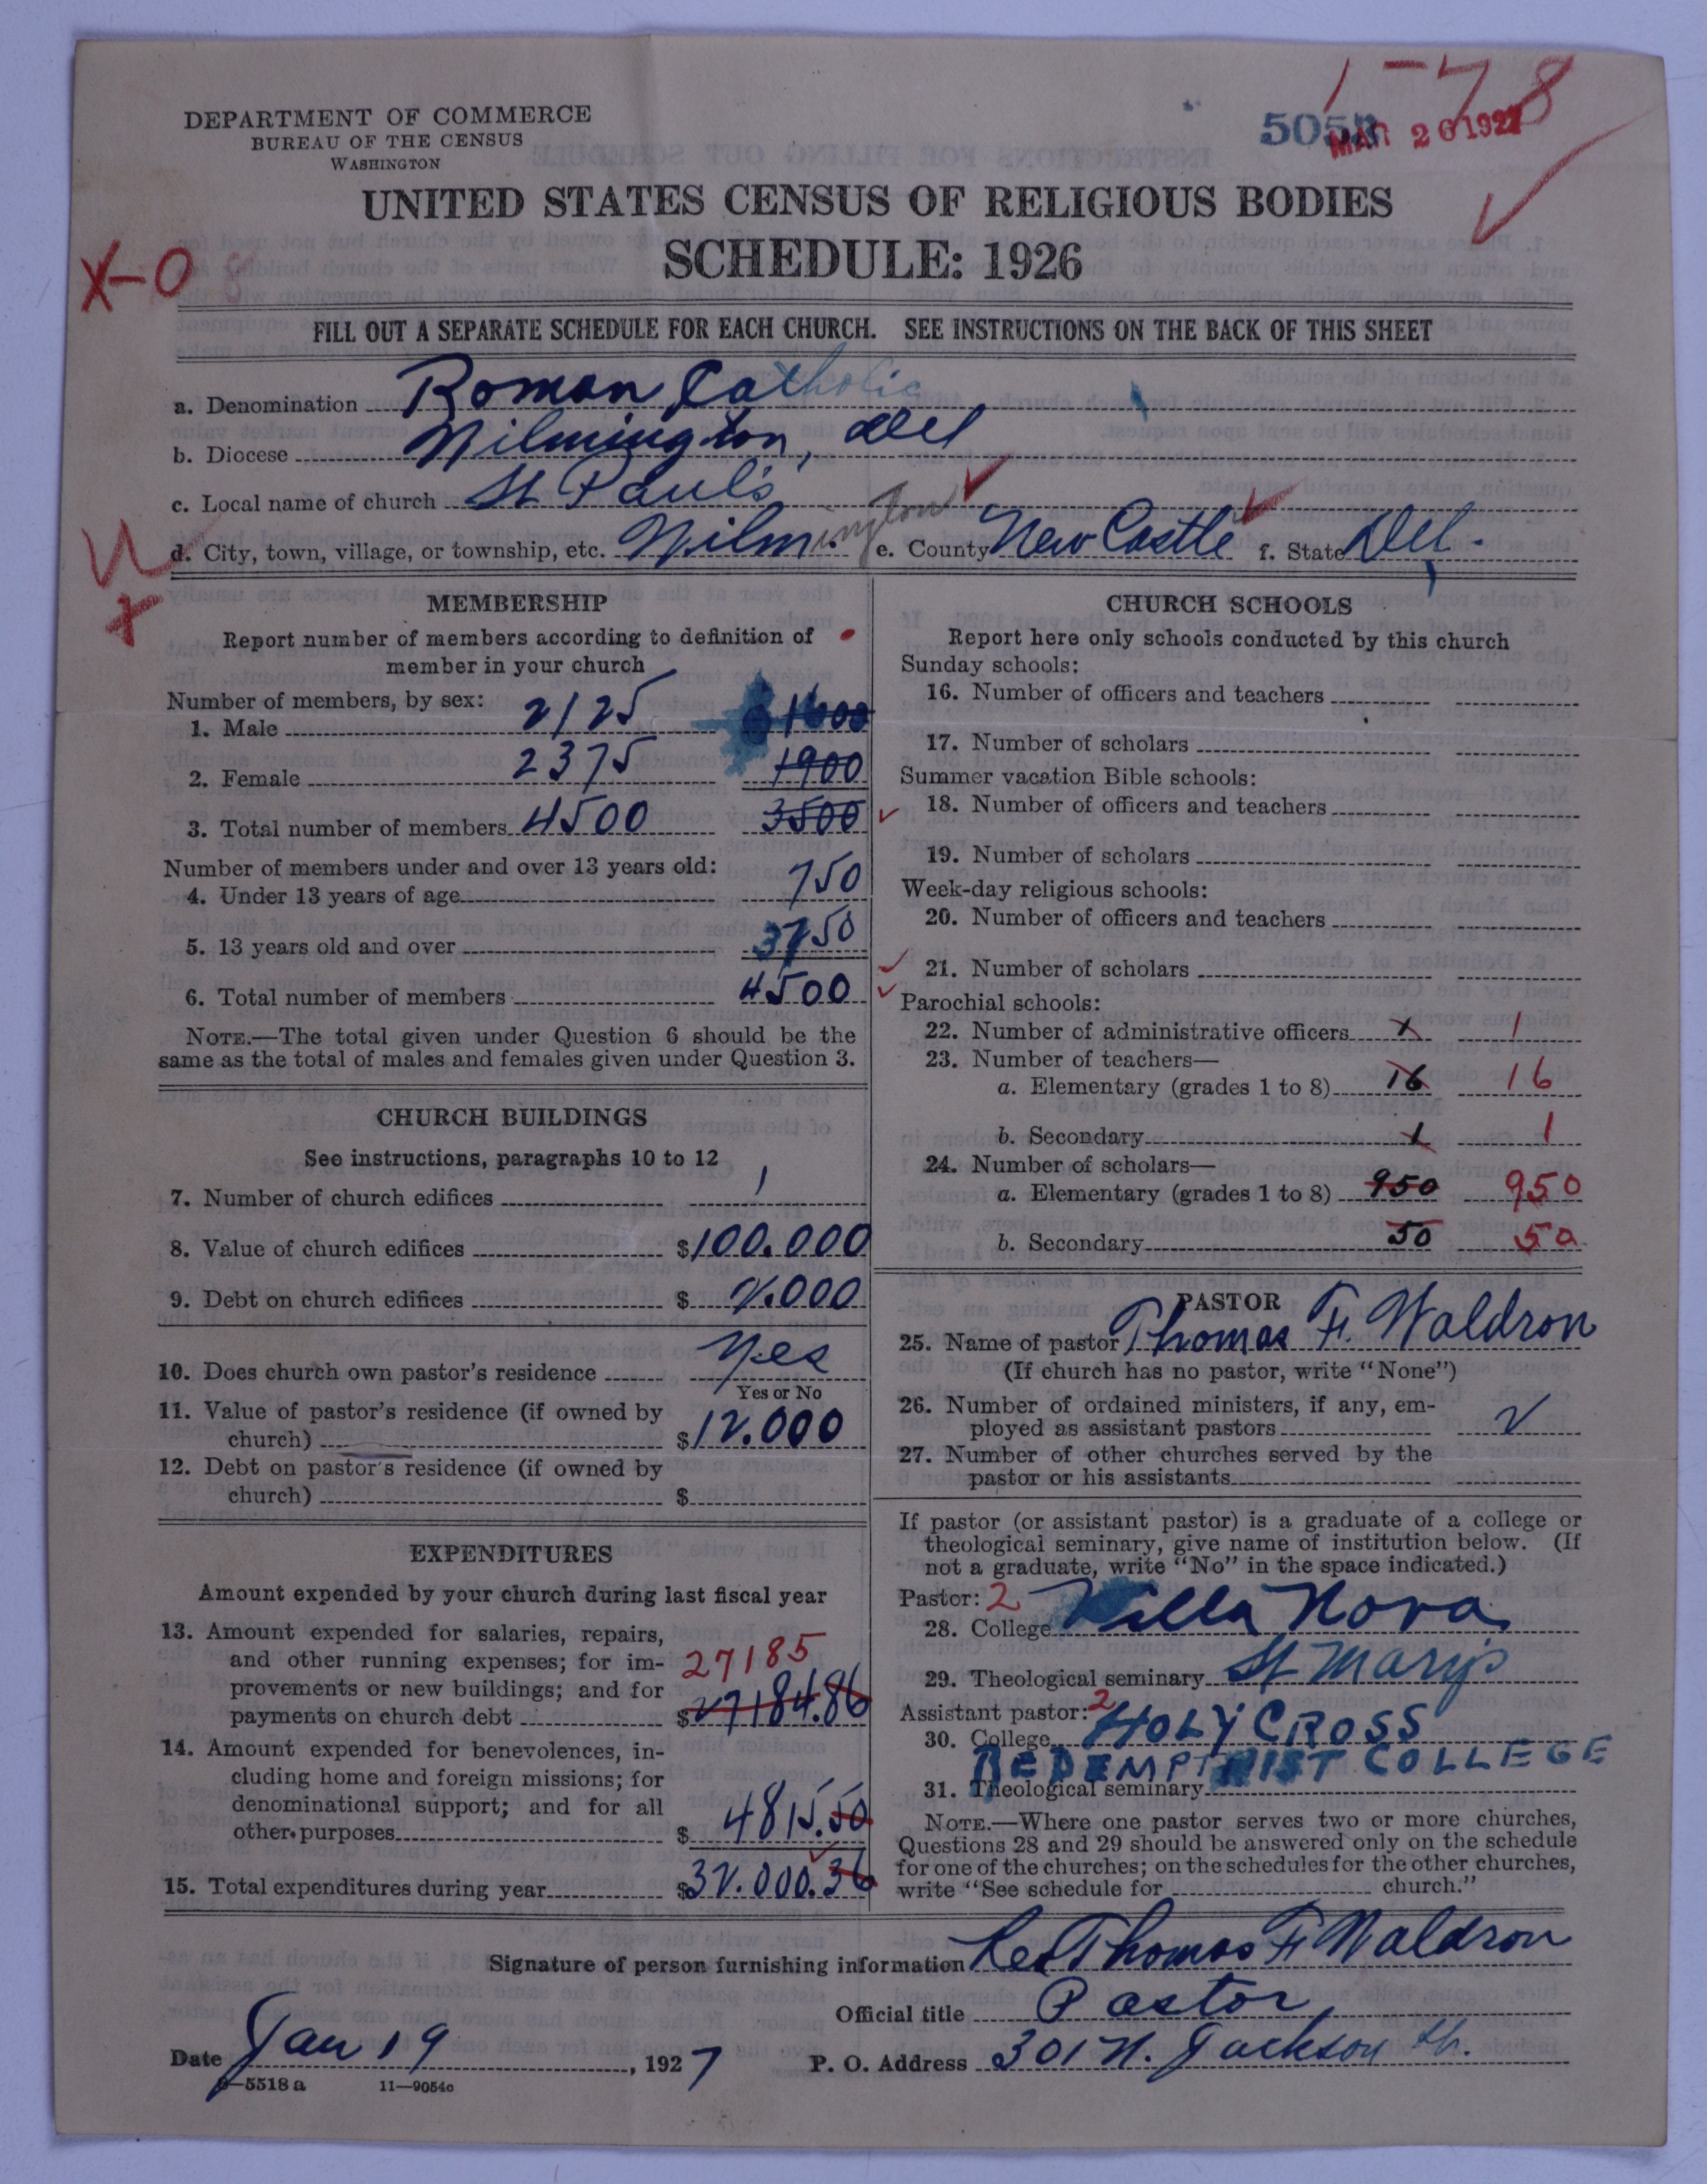 1-78
5053
MAR 26 1927
DEPARTMENT OF COMMERCE
BUREAU OF THE CENSUS
WASHINGTON
UNITED STATES CENSUS OF RELIGIOUS BODIES
SCHEDULE: 1926
X-0
FILL OUT A SEPARATE SCHEDULE FOR EACH CHURCH. SEE INSTRUCTIONS ON THE BACK OF THIS SHEET
a. Denomination Roman Catholic
b. Diocese Wilmington, Del
c. Local name of church St Paul's
d. City, town, village, or township, etc. Wilmington e. County New Castle f. State Del.
MEMBERSHIP
Report number of members according to definition of
member in your church
Number of members, by sex:
1. Male 2125 1600
2. Female 2375 1900
3. Total number of members 4500 3500
Number of members under and over 13 years old:
4. Under 13 years of age 750
5. 13 years old and over 3750
6. Total number of members 4500
NOTE.—The total given under Question 6 should be the
same as the total of males and females given under Question 3.
CHURCH BUILDINGS
See instructions, paragraphs 10 to 12
7. Number of church edifices 1
8. Value of church edifices $100.000
9. Debt on church edifices $ 2.000
10. Does church own pastor's residence Yes
Yes or No
11. Value of pastor's residence (if owned by
church) $12.000
12. Debt on pastor's residence (if owned by
church) $
EXPENDITURES
Amount expended by your church during last fiscal year
13. Amount expended for salaries, repairs,
and other running expenses; for im- 27185
provements or new buildings; and for
payments on church debt $27184.86
14. Amount expended for benevolences, in-
cluding home and foreign missions; for
denominational support; and for all
other purposes $ 4815.50
15. Total expenditures during year $32.000.36
CHURCH SCHOOLS
Report here only schools conducted by this church
Sunday schools:
16. Number of officers and teachers
17. Number of scholars
Summer vacation Bible schools:
18. Number of officers and teachers
19. Number of scholars
Week-day religious schools:
20. Number of officers and teachers
21. Number of scholars
Parochial schools:
22. Number of administrative officers 1 1
23. Number of teachers—
a. Elementary (grades 1 to 8) 16 16
b. Secondary 1 1
24. Number of scholars—
a. Elementary (grades 1 to 8) 950 950
b. Secondary 50 50
PASTOR
25. Name of pastor Thomas F. Waldron
(If church has no pastor, write "None")
26. Number of ordained ministers, if any, em-
ployed as assistant pastors 2
27. Number of other churches served by the
pastor or his assistants
If pastor (or assistant pastor) is a graduate of a college or
theological seminary, give name of institution below. (If
not a graduate, write "No" in the space indicated.)
Pastor: 2
28. College Villa Nova
29. Theological seminary St Mary's
Assistant pastor: 2
30. College HOLY CROSS
REDEMPTRIST COLLEGE
31. Theological seminary
NOTE.—Where one pastor serves two or more churches,
Questions 28 and 29 should be answered only on the schedule
for one of the churches; on the schedules for the other churches,
write "See schedule for church."
Signature of person furnishing information Rev Thomas F Waldron
Official title Pastor,
Date Jan 19, 1927 P. O. Address 301 N. Jackson St.
9—5518 a 11—9054c